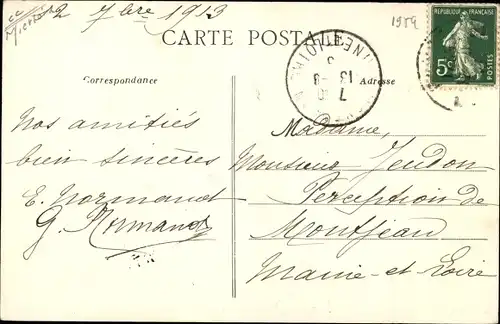 ce 2 7bre 1913
1909
CARTE POSTALE
Correspondance
Adresse
RÉPUBLIQUE FRANÇAISE
5c
POSTES
Nos amitiés
bien sincères
E. Normand
G. Normand
Madame,
Monsieur Jeudon
Perception de
Montjean
Maine-et-Loire